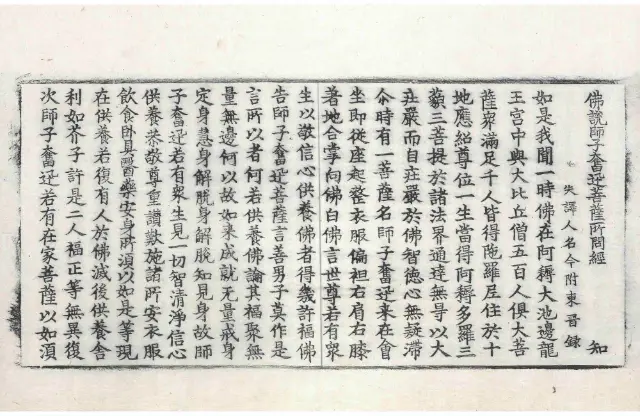 佛說師子奮迅菩薩所問經 知
失譯人名今附東晉錄
如是我聞一時佛在阿耨大池邊龍
王宮中與大比丘僧五百人俱大菩
薩衆滿足千人皆得陁羅尼住於十
地應紹尊位一生當得阿耨多羅三
藐三菩提於諸法界通達無㝵以大
莊嚴而自莊嚴於佛智德心無疑滯
尒時有一菩薩名師子奮迅来在會
坐即從座起整衣服偏袒右肩右膝
著地合掌向佛白佛言世尊若有衆
生以敬信心供養佛者得幾許福佛
告師子奮迅菩薩言善男子莫作是
言所以者何若供養佛論其福聚無
量無邊何以故如来成就无量戒身
定身慧身解脫身解脫知見身故師
子奮迅若有衆生見一切智清淨信心
供養恭敬尊重讃歎施諸所安衣服
飲食卧具醫藥安身所湏以如是等現
在供養若復有人於佛滅後供養舍
利如芥子許是二人福正等無異復
次師子奮迅若有在家菩薩以如湏